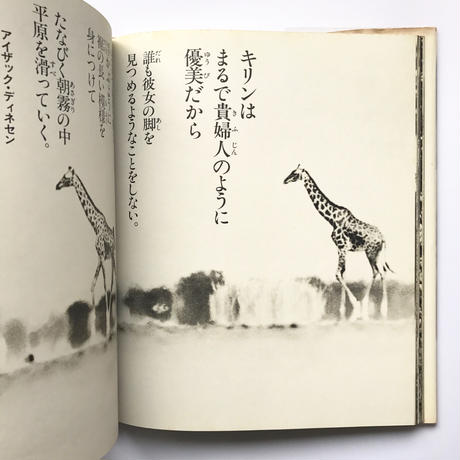 キリンは
まるで貴婦人のように
優美だから
誰も彼女の脚を
見つめるようなことをしない。
の長い模様を
身につけて
たなびく朝霧の中
平原を滑っていく。
アイザック・ディネセン